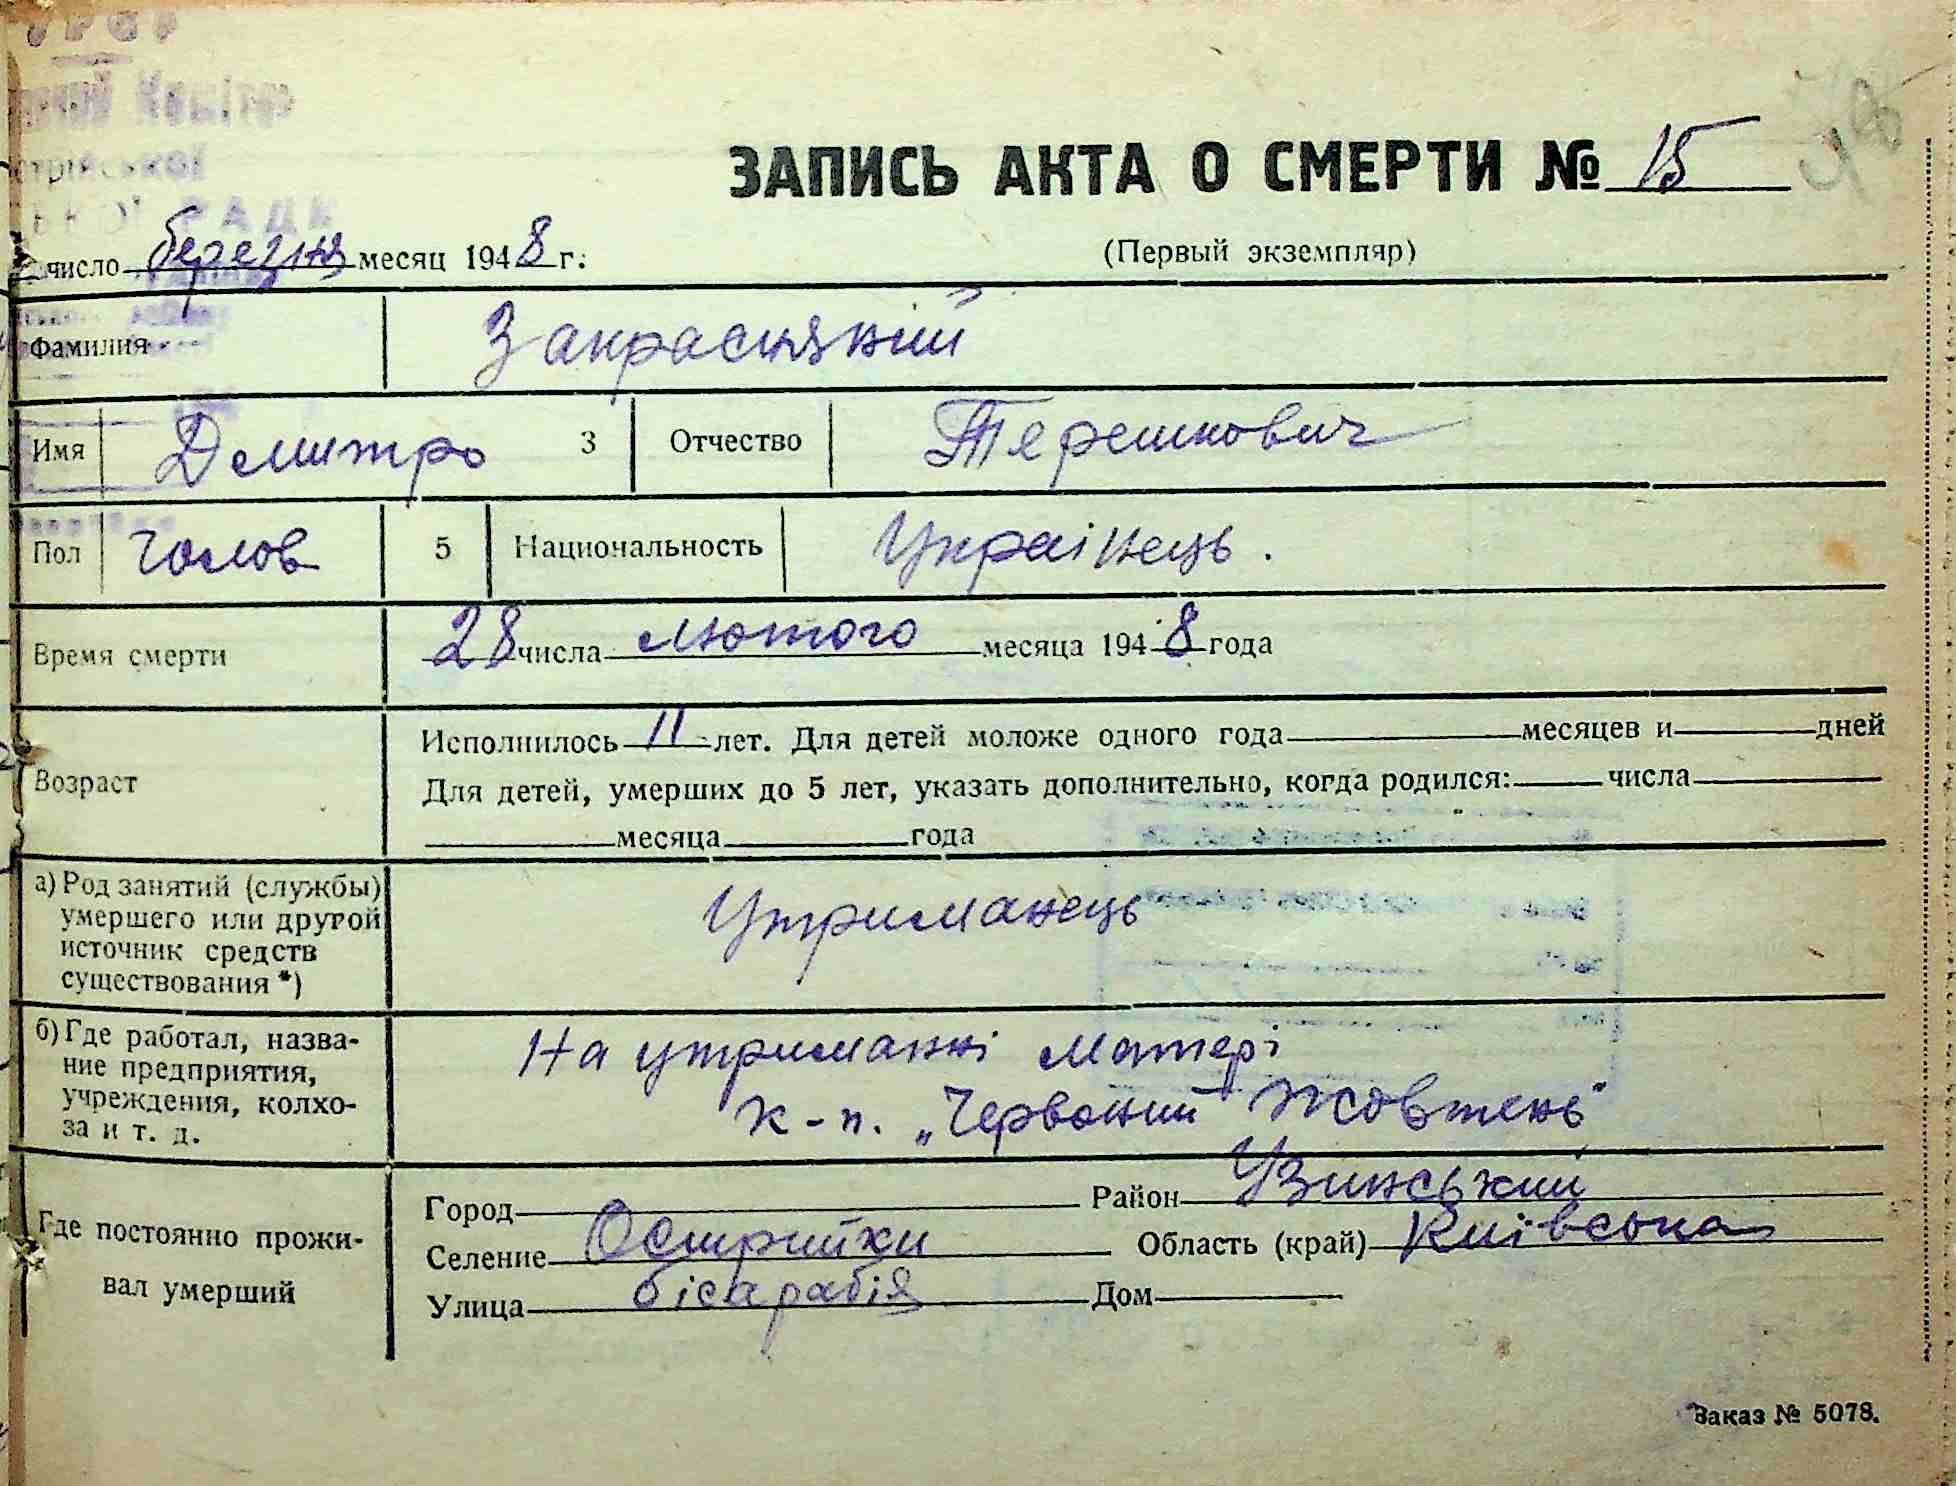 УРСР
ЗАПИСЬ АКТА О СМЕРТИ № 15
(Первый экземпляр)
число березня месяц 1948 г.
Фамилия Закрасняний
Имя Дмитро 3 Отчество Терешкович
Пол Чолов 5 Национальность Українець.
Время смерти 28 числа лютого месяца 1948 года
Возраст
Исполнилось 11 лет. Для детей моложе одного года месяцев и дней
Для детей, умерших до 5 лет, указать дополнительно, когда родился: числа
месяца года
а) Род занятий (службы)
умершего или другой
источник средств
существования *)
Утриманець
б) Где работал, назва-
ние предприятия,
учреждения, колхо-
за и т. д.
На утриманні матері
к-п. „Червоний Жовтень"
Где постоянно прожи-
вал умерший
Город Район Узинський
Селение Острийки Область (край) Київська
Улица бісарабія Дом
Заказ № 5078.